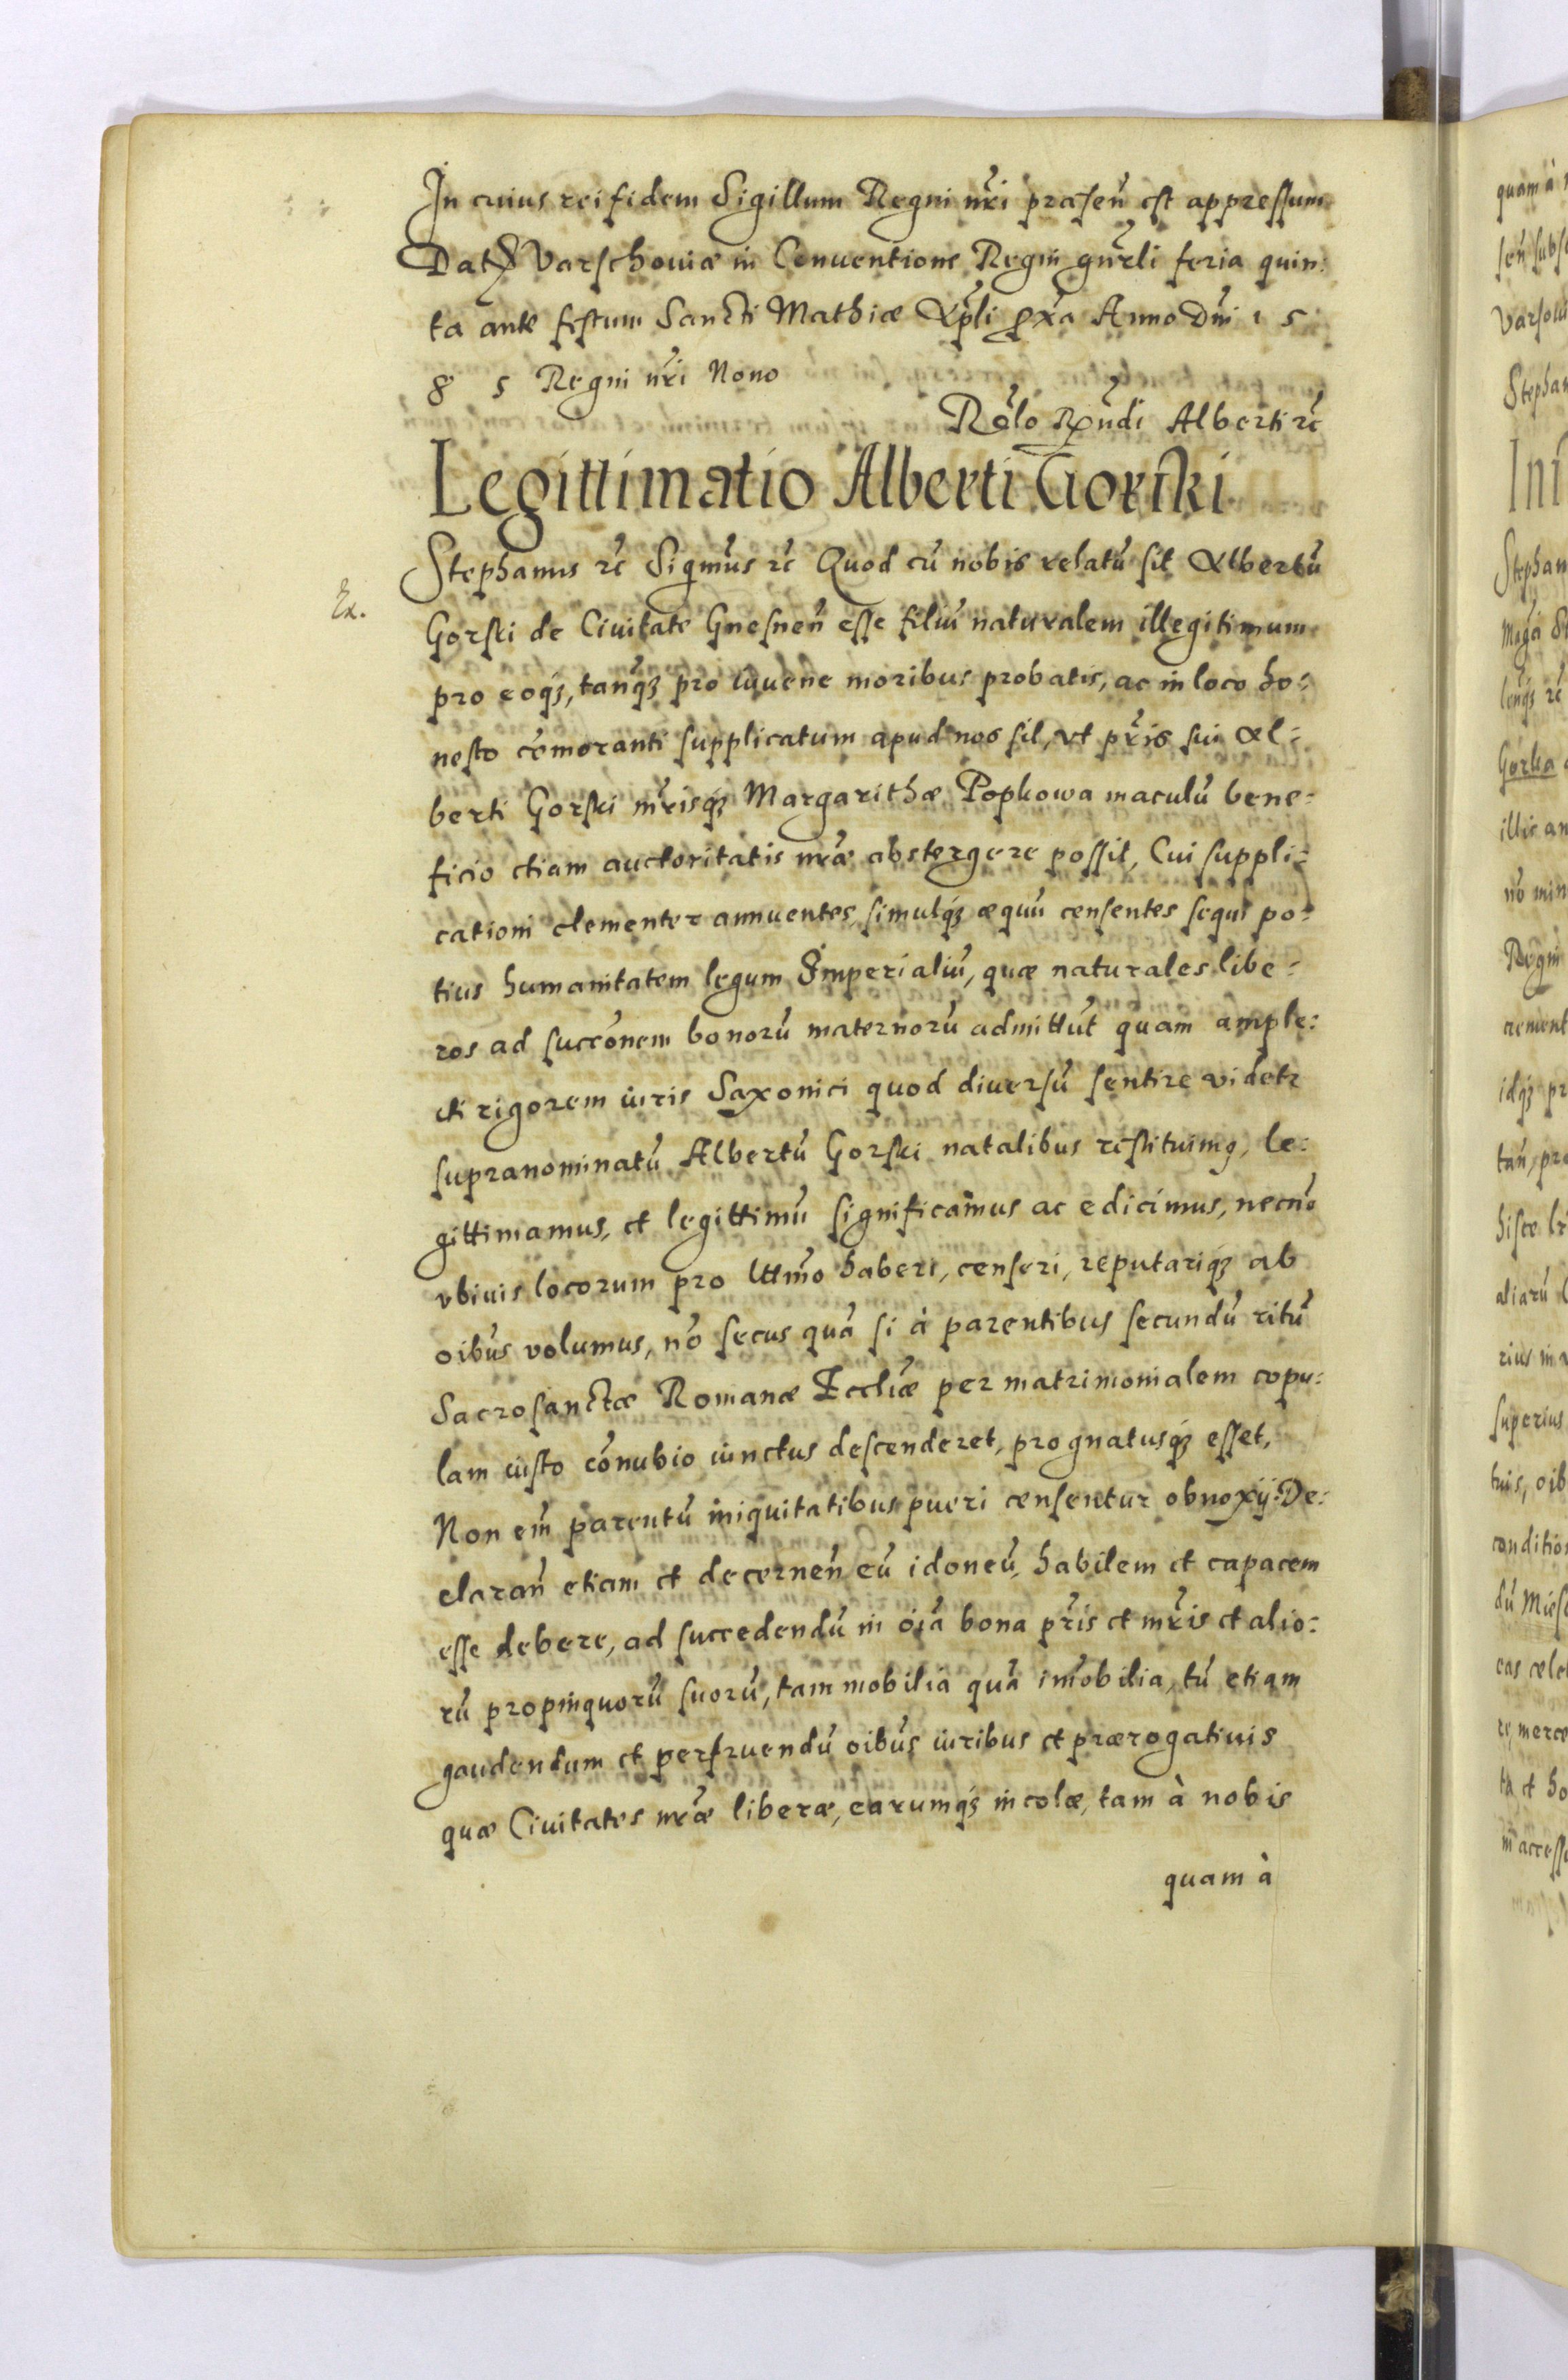 In cuius rei fidem Sigillum Regni nr̃i præsen̄ est appressum
Dat̃ Varschouiæ in Conuentione Regni gnr̃li feria quin:
ta ante festum Sancti Mathiæ Apl̃i px̃a Anno Dnĩ 1 5
8 5 Regni nr̃i Nono
Rel̃o Rñdi Alberti ꝛc̃
Legittimatio Alberti Gorski
Stephanus ꝛc̃ Sigm̃us ꝛc̃ Quod cũ nobis relatũ sit Albertũ
Ex.
Gorski de Ciuitate Gnesnen̄ esse filiũ naturalem illegitimum
pro eoqꝫ, tanqꝫ pro iuuene moribus probatis, ac in loco ho:
nesto cõmoranti supplicatum apud nos sit, vt pr̃is sui Al:
berti Gorski mr̃isqꝫ Margarithæ Popkowa maculũ bene:
ficio etiam auctoritatis nr̃æ abstergere possit, Cui suppli:
cationi clementer annuentes, simulqꝫ æquũ censentes sequi po:
tius humanitatem legum Imperialiũ, quæ naturales libe:
ros ad succõnem bonorũ maternorũ admittũt quam ample:
cti rigorem iuris Saxonici quod diuersũ sentire videtr
supranominatũ Albertũ Gorski natalibus restituimꝰ, le:
gittimamus, et legittimũ significamus ac edicimus, necnõ
vbiuis locorum pro lttm̃o haberi, censeri, reputariqꝫ ab
oibũs volumus, nõ secus quã si à parentibus secundũ ritũ
Sacrosanctæ Romanæ Eccliæ̃ per matrimonialem copu:
lam iusto cõnubio iunctus descenderet, prognatusqꝫ esset,
Non em̃ parentũ iniquitatibus pueri censentur obnoxij: De:
claran̄ etiam et decernen̄ eũ idoneũ, habilem et capacem
esse debere, ad succedendũ in oĩa bona pr̃is et mr̃is et alio:
rũ propinquorũ suorũ, tam mobilia quã im̃obilia, tũ etiam
gaudendum et perfruendũ oibũs iuribus et prærogatiuis
quæ Ciuitates nr̃æ liberæ, earumqꝫ incolæ, tam à nobis
quam à